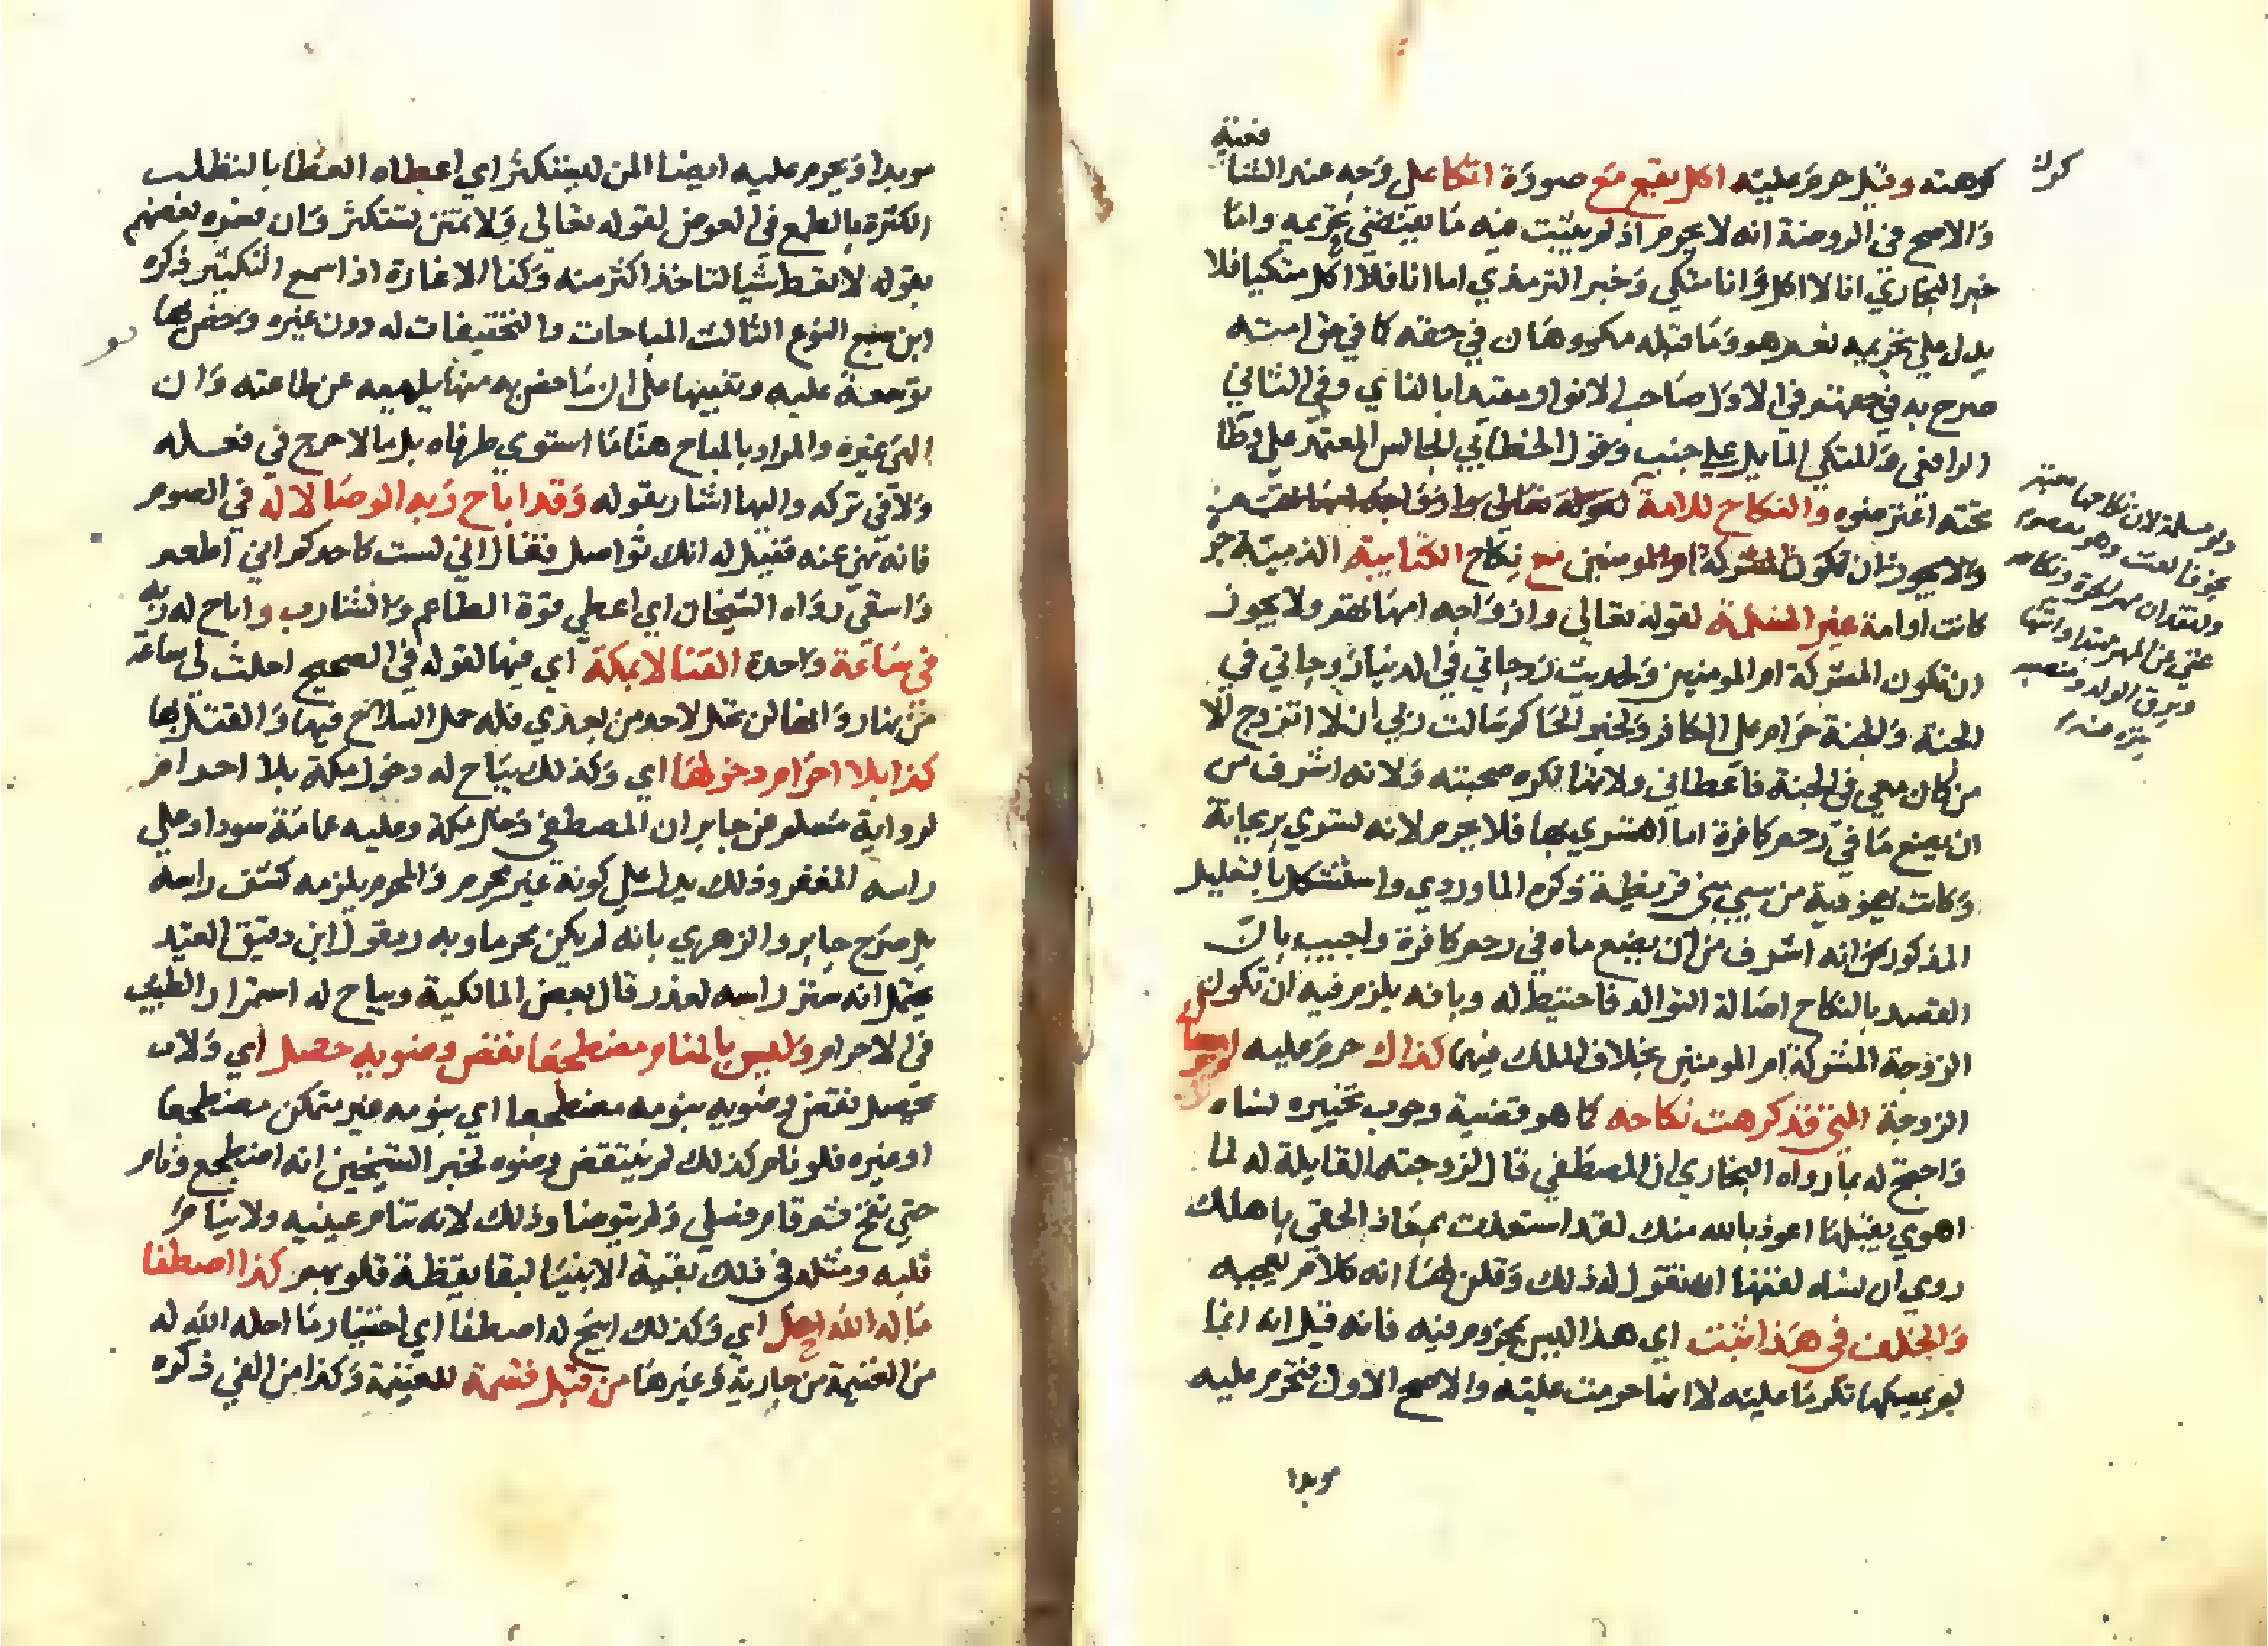 كرهته وقيل حرم عليه اكل يقع مع صورة اتكا على وجه عند الشافعية
والاصح في الروضة انه لا يحرم اذ لم يثبت فيه ما يقتضي تحريمه واما
خبر البخاري انا لا اكل وانا متكي وخبر الترمذي اما انا فلا اكل متكيا فلا
يدل على تحريمه نعم هو وما قبله مكروهان في حقه كما في حق امته
صرح به في الاول صاحب الانوار وفي الثاني
الرافعي والمتكي المايل على جنب وقول الخطابي الجالس المعتمد على وطا
تحته اعترضوه والنكاح للامة
ولا يجوز ان تكون المشركة ام المومنين مع نكاح الكتابية الذمية حرة
كانت او امة غير المسلمة لقوله تعالى وازواجه امهاتهم ولا يجوز
ان تكون المشركة ام المومنين ولحديث زوجاتي في الدنيا زوجاتي في
الجنة والجنة حرام على الكافر ولخبر الحاكم سالت ربي ان لا اتزوج الا
من كان معي في الجنة فاعطاني ولانها تكره صحبته ولانه اشرف من
ان يضع ماه في رحم كافرة اما التسري بها فلا يحرم لانه تسرى بريحانة
وكانت يهودية من سبي بني قريظة ذكره الماوردي واستشكل بالتعليل
المذكور من انه اشرف من ان يضع ماه في رحم كافرة واجيب بان
القصد بالنكاح اصالة التوالد فاحتيط له وبانه يلزم فيه ان تكون
الزوجة المشركة ام المومنين بخلاف الملك فيها كذاك حرم عليه
الزوجة التي قد كرهت نكاحه كما هو قضية وجوب تخييره نساه
واحتج له بما رواه البخاري ان المصطفى قال لزوجته القايلة له لما
اهوى يقبلها اعوذ بالله منك لقد استعذت بمعاذ الحقي باهلك
روي ان نساه لقنها ان تقول له ذلك وقلن لها انه كلام يعجبه
والخلف في هذا ثبت اي هذا ليس بمجزوم فيه فانه قيل انه انما
لم يمسكها تكرما عليه لا انها حرمت عليه والاصح الاول فتحرم عليه
موبدا
موبدا ويحرم عليه ايضا المن ليستكثر اي اعطاه العطا بالتطلب
الكثرة بالطمع في العوض لقوله تعالى ولا تمنن تستكثر وان فسره بعضهم
بقوله لا تعط شيا لتاخذ اكثر منه وكذا الاغارة اذا سمع التكبير ذكره
ابن سبع النوع الثالث المباحات والتخفيفات له دون غيره وخص بها
توسعة عليه وتنبيها على ان ما خص به منها يلهيه عن طاعته وان
الهى غيره والمراد بالمباح هنا ما استوى طرفاه بل ما لا حرج في فعله
ولا في تركه واليها اشار بقوله وقد اباح ربه الوصال له في الصوم
فانه نهى عنه فقيل له انك تواصل فقال اني لست كاحدكم اني اطعم
واسقى رواه الشيخان اي اعطي قوة الطاعم والشارب واباح له ربه
في ساعة واحدة القتال بمكة اي فيها لقوله في الصحيح احلت لي ساعة
من نهار وانها لن تحل لاحد من بعدي فله حمل السلاح فيها والقتل بها
كذا بلا احرام دخولها اي وكذلك يباح له دخول مكة بلا احرام
لرواية مسلم عن جابر ان المصطفى دخل مكة وعليه عمامة سودا وعلى
راسه المغفر وذلك يدل على كونه غير محرم والمحرم يلزمه كشف راسه
بل صرح جابر والزهري بانه لم يكن محرما وبه رد قول ابن دقيق العيد
يحتمل انه ستر راسه لعذر قال بعض المالكية ويباح له استمرار الطيب
في الاحرام وليس بالمنام مضطجعا نقض وضويه حصل اي ولا
يحصل نقض وضويه بنومه مضطجعا اي بنومه غير متمكن مضطجعا
او غيره فلو نام كذلك لم ينتقض وضوه لخبر الشيخين انه اضطجع ونام
حتى نفخ ثم قام فصلى ولم يتوضا وذلك لانه تنام عينيه ولا ينام
قلبه ومثله في ذلك بقية الانبيا لبقا يقظة قلوبهم كذا اصطفا
ما له الله احل اي وكذلك ابيح له اصطفا اي اختيار ما احله الله له
من الغنيمة من جارية وغيرها من قبل قسمة للغنيمة وكذا من الفي ذكره